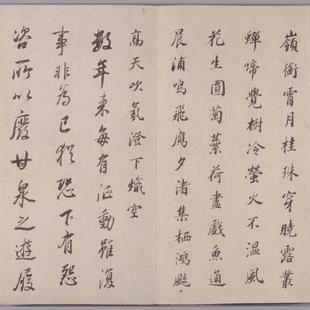 嶺銜霄月桂珠穿曉露叢
蟬啼覺樹冷螢火不溫風
花生圓菊蘂荷盡戲魚通
晨浦鳴飛鴈夕渚集栖鴻颯〻
高天吹氛澄下熾空
數年來每有征動雖復
事非為己猶恐下有怨
咨所以廢甘泉之遊履